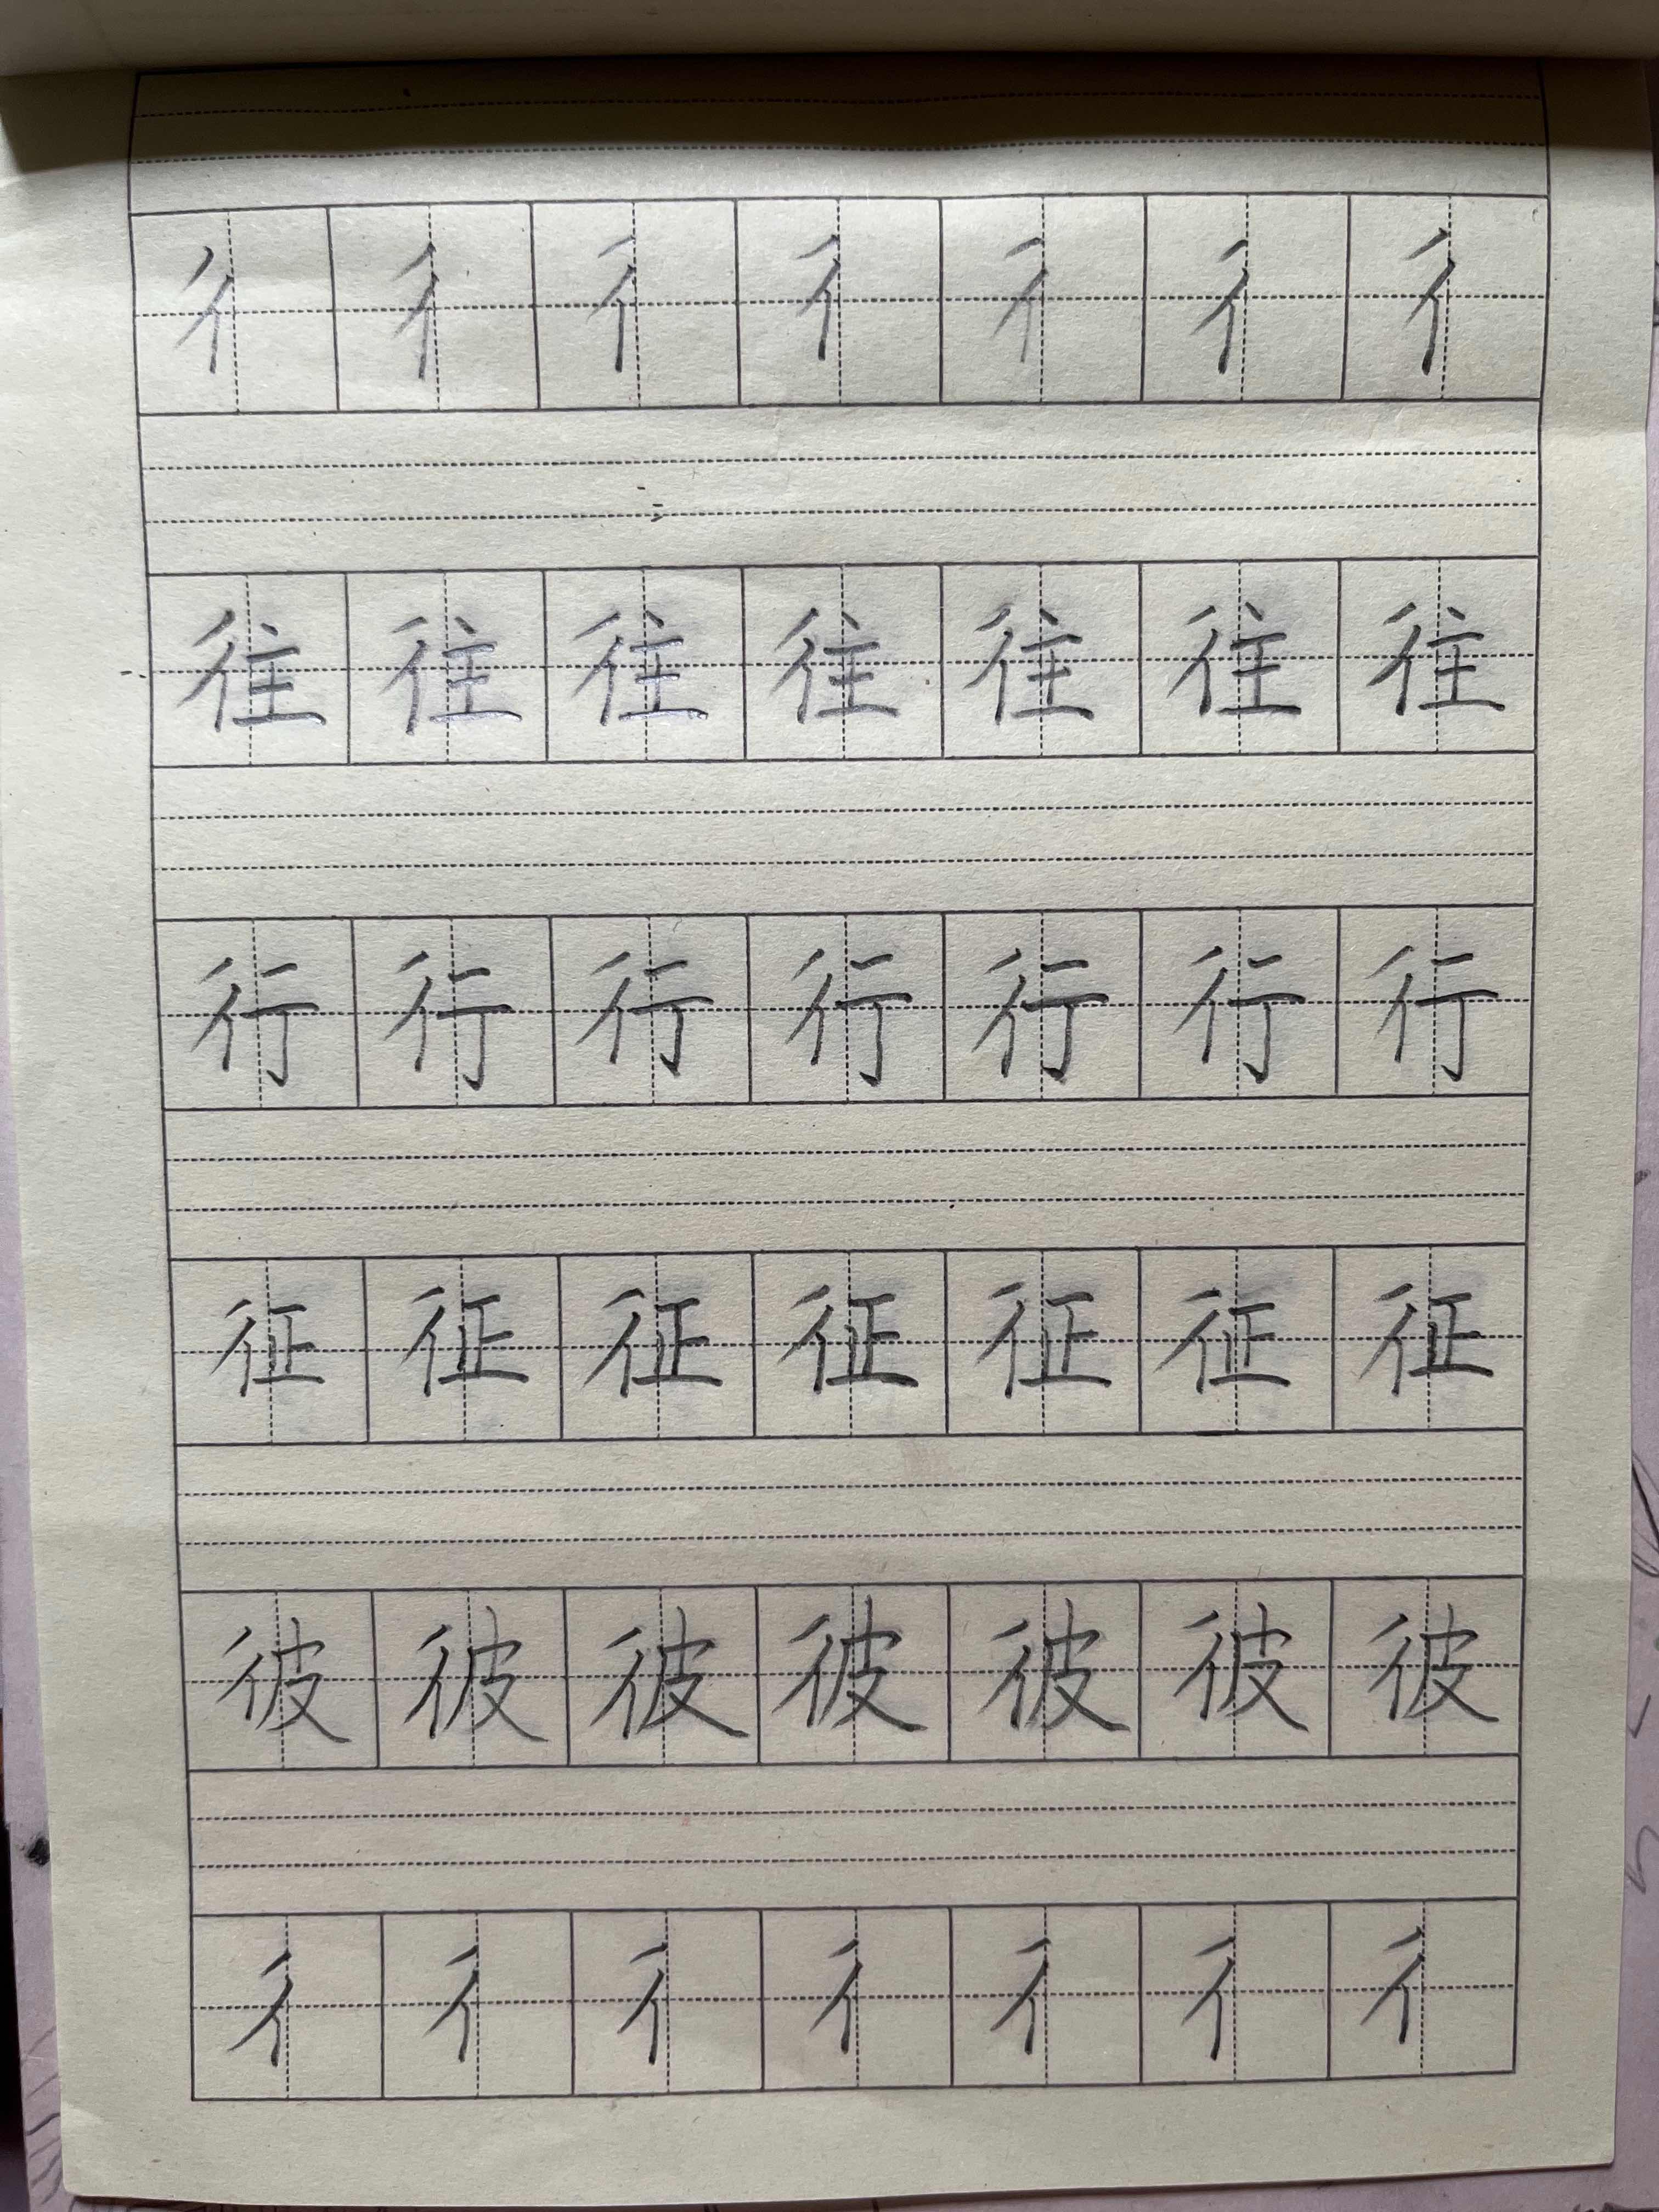 彳彳彳彳彳彳彳
往往往往往往往
行行行行行行行
征征征征征征征
彼彼彼彼彼彼彼
彳彳彳彳彳彳彳